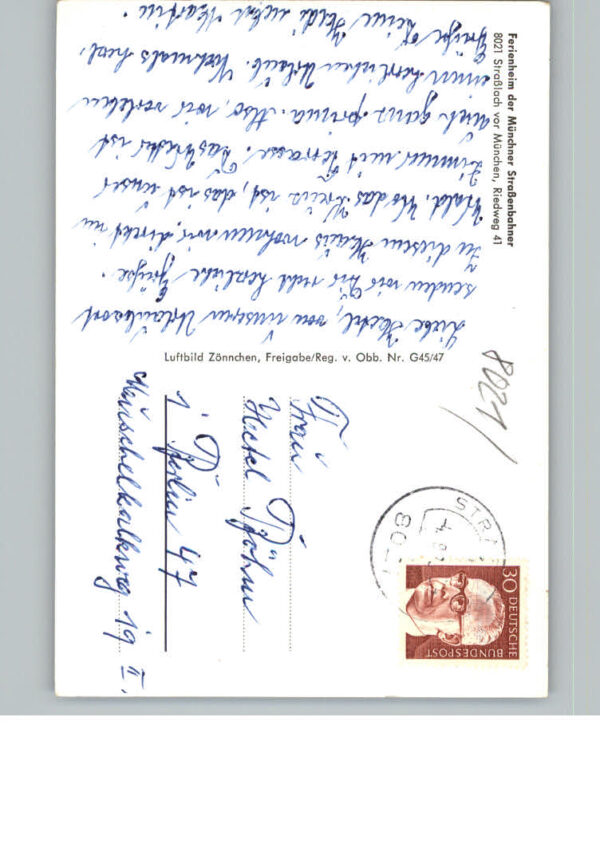 Ferienheim der Münchner Straßenbahner
8021 Straßlach vor München, Riedweg 41
Liebe Hertel, von unserem Urlaubsort
senden wir Dir recht herzliche Grüße.
In diesem Haus wohnen wir direkt im
Wald. Wo das Kreuz ist, das ist unser
Zimmer mit Terrasse. Das Wetter ist
auch ganz prima. Also, wir verleben
einen herrlichen Urlaub. Nochmals herzl.
Grüße v. Deine Heidi nebst Martin.
Luftbild Zönnchen, Freigabe/Reg. v. Obb. Nr. G45/47
8021/
30
DEUTSCHE
BUNDESPOST
Frau
Hertel Böhm
1 Berlin 47
Muschelkalkweg 19 II.